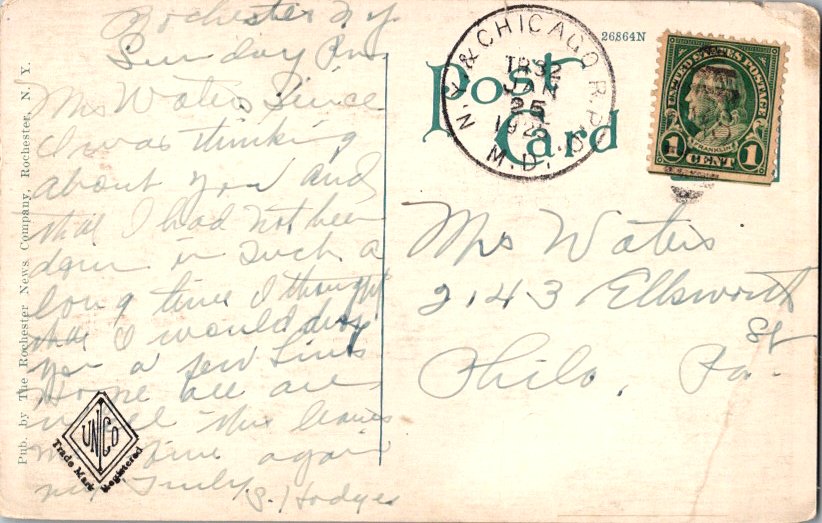 Rochester N.Y.
Sunday Pm.
Mrs Waters Since
I was thinking
about you and
that I had not been
down in such a
long time I thought
that I would drop
you a few lines
Home all are
well this leaves
me fine again
Truly
S. Hodges
Pub. by The Rochester News Company, Rochester, N. Y.
UNCO
Trade Mark Registered
N.Y. & CHICAGO R.P.O.
TR32
JAN
25
M.D.
26864N
Post
Card
UNITED STATES POSTAGE
FRANKLIN
1 CENT 1
Mrs Waters
2143 Ellsworth
St
Phila, Pa.